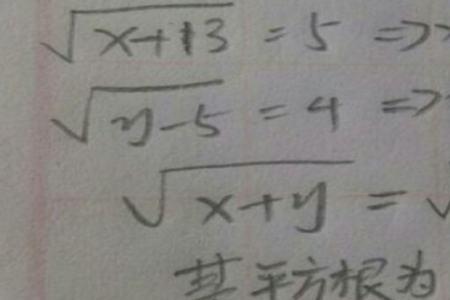 √x+13 = 5 =>
√y-5 = 4 =>
√x+y = √
其平方根为